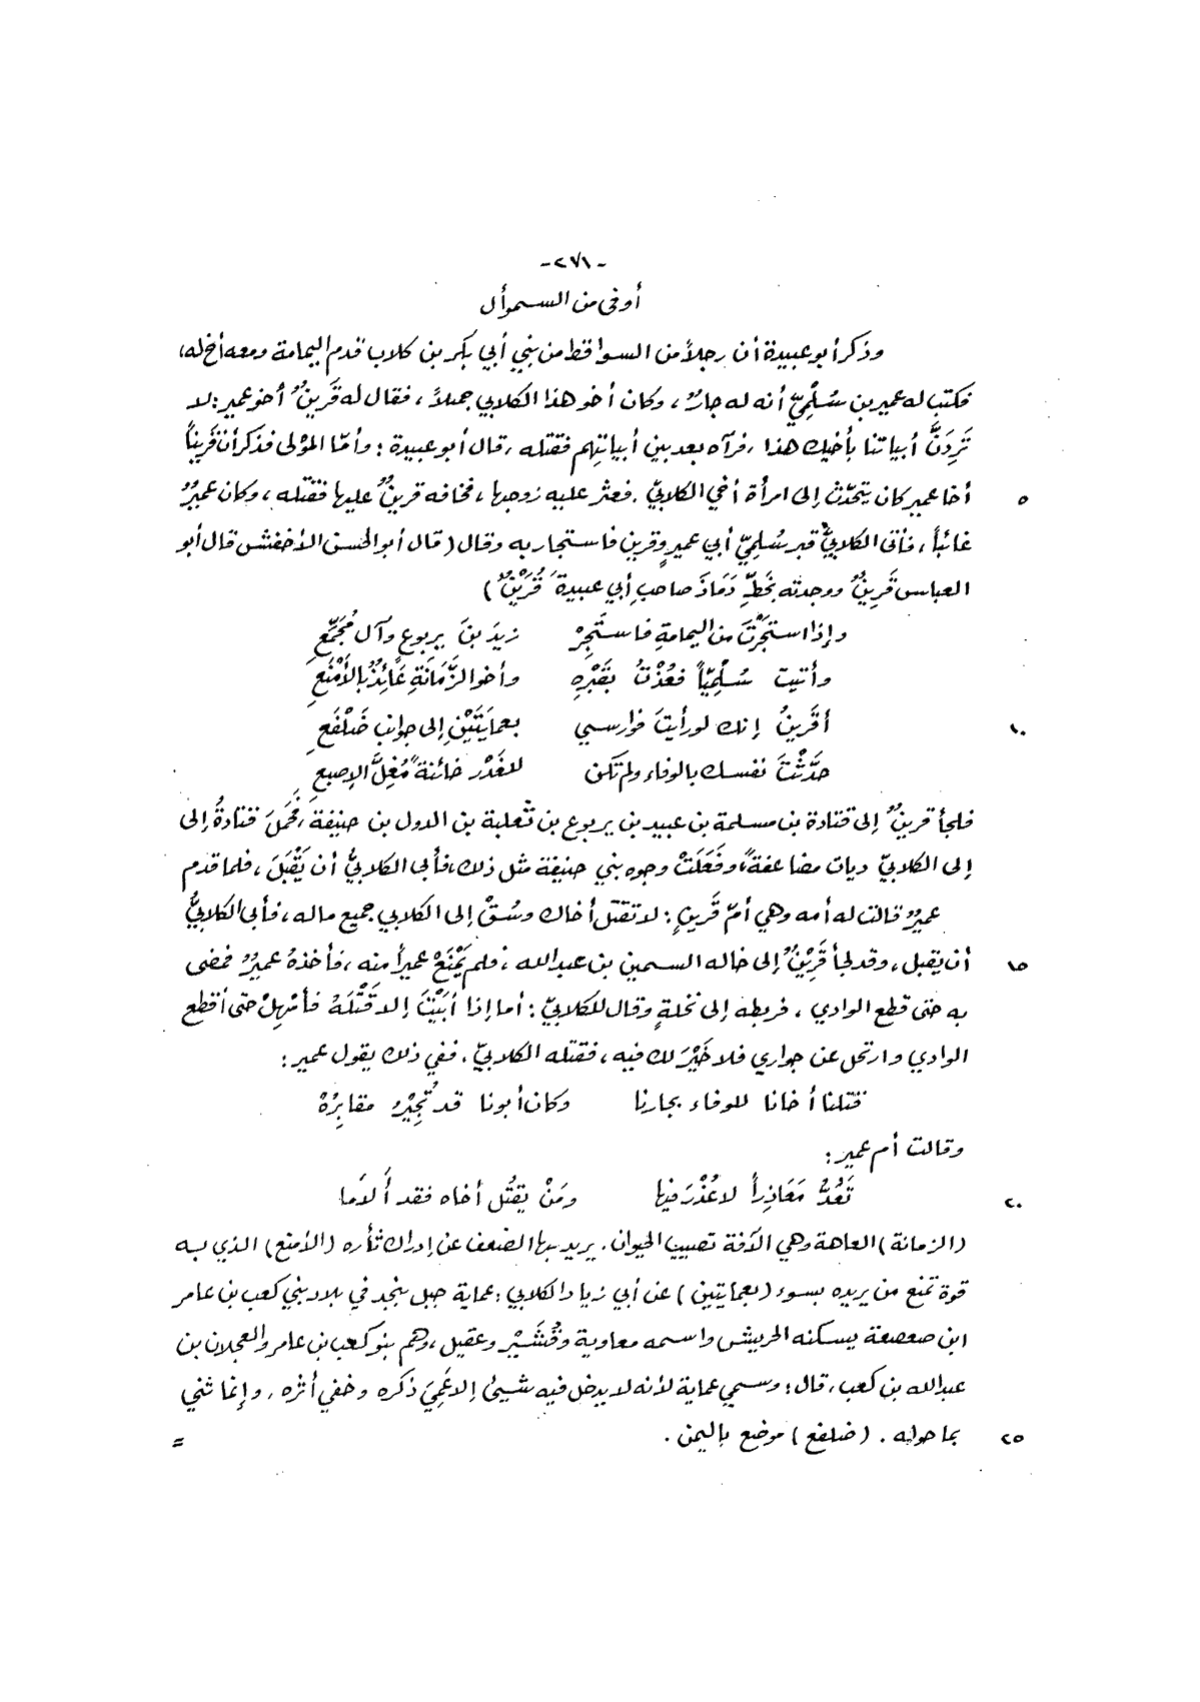 -٢٧١-
أوفى من السموأل
وذكر أبو عبيدة أن رجلاً من السواقط من بني أبي بكر بن كلاب قدم اليمامة ومعه أخ له،
فكتب له عمير بن سُلْمِيّ أنه له جارٌ، وكان أخو هذا الكلابي جميلاً، فقال له قَرِينٌ أخو عمير: لا
تَرِدَنَّ أبياتنا بأخيك هذا، فرآه بعد بين أبياتِهم فقتله، قال أبو عبيدة: وأمّا المَوْلى فذكر أن قَرِيناً
٥ أخا عمير كان يتحدّث إلى امرأة أخي الكلابيّ. فعثر عليه زوجها، فخافه قرينٌ عليها فقتله، وكان عميرٌ
غائباً، فأتى الكلابيُّ قبر سُلمِيّ أبي عميرٍ وقرينٍ فاستجار به وقال (قال أبو الحسن الأخفش قال أبو
العباس قَرِينٌ ووجدته بخَطِّ دَمَاذَ صاحبِ أبي عبيدةَ قُرَيْنٌ)
وإذا استجَرْتَ من اليمامةِ فاستَجِرْ زيدَ بنَ يربوعٍ وآل مُجَمِّعِ
وأتيت سُلْمِيّاً فعُذْتُ بقَبْرِهِ وأخو الزَّمَانَةِ عَائِذٌ بالأَمْنَعِ
١٠ أقَرينُ إنك لو رأيتَ فوارسي بعمايَتَيْنِ إلى جوانب ضَلْفَعِ
حَدَّثْتَ نفسك بالوفاء ولم تكن للغَدْر خائنةً مُغِلَّ الإصبعِ
فلجأ قرينٌ إلى قتادة بن مسلمة بن عبيد بن يربوع بن ثعلبة بن الدول بن حنيفة، فحَمَلَ قتادةُ إلى
إلى الكلابيّ ديات مضاعفةً، وفَعَلَتْ وجوه بني حنيفة مثل ذلك، فأبى الكلابيُّ أن يَقْبَلَ، فلما قدم
عميرٌ قالت له أمه وهي أمّ قَرينٍ: لا تقتل أخاك وسُقْ إلى الكلابي جميع ماله، فأبى الكلابيُّ
١٥ أن يقبل، وقد لجأ قَرِيْنٌ إلى خاله السمين بن عبدالله، فلم يَمْنَعْ عميراً منه، فأخذهُ عميرٌ فمضى
به حتى قطع الوادي، فربطه إلى نخلةٍ وقال للكلابيّ: أما إذا أبَيْتَ إلا قَتْلَهُ فأمْهِلْ حتى أقطع
الوادي وارتحل عن جواري فلا خَيْرَ لك فيه، فقتله الكلابيّ. ففي ذلك يقول عمير:
قتلنا أخانا للوفاء بجارنا وكان أبونا قد تُجِيْرُ مقابِرُهْ
وقالت أم عمير:
٢٠ تَعُدُّ مَعَاذِراً لا عُذْرَ فيها ومَنْ يقتُل أخاه فقد أَلاَمَا
(الزمانة) العاهة وهي الآفة تصيب الحيوان. يريد بها الضعف عن إدراك ثأره (الأمنع) الذي به
قوة تمنع من يريده بسوء (بعمايتين) عن أبي زياد الكلابي: عماية جبل بنجد في بلاد بني كعب بن عامر
ابن صعصعة يسكنه الحريش واسمه معاوية وقُشَيْر وعقيل، وهم بنو كعب بن عامر والعجلان بن
عبدالله بن كعب، قال: وسمي عماية لأنه لا يدخل فيه شيئ إلا عَمِيَ ذكره وخفي أثره، وإنما ثني
٢٥ بما حوله. (ضلفع) موضع باليمن. =